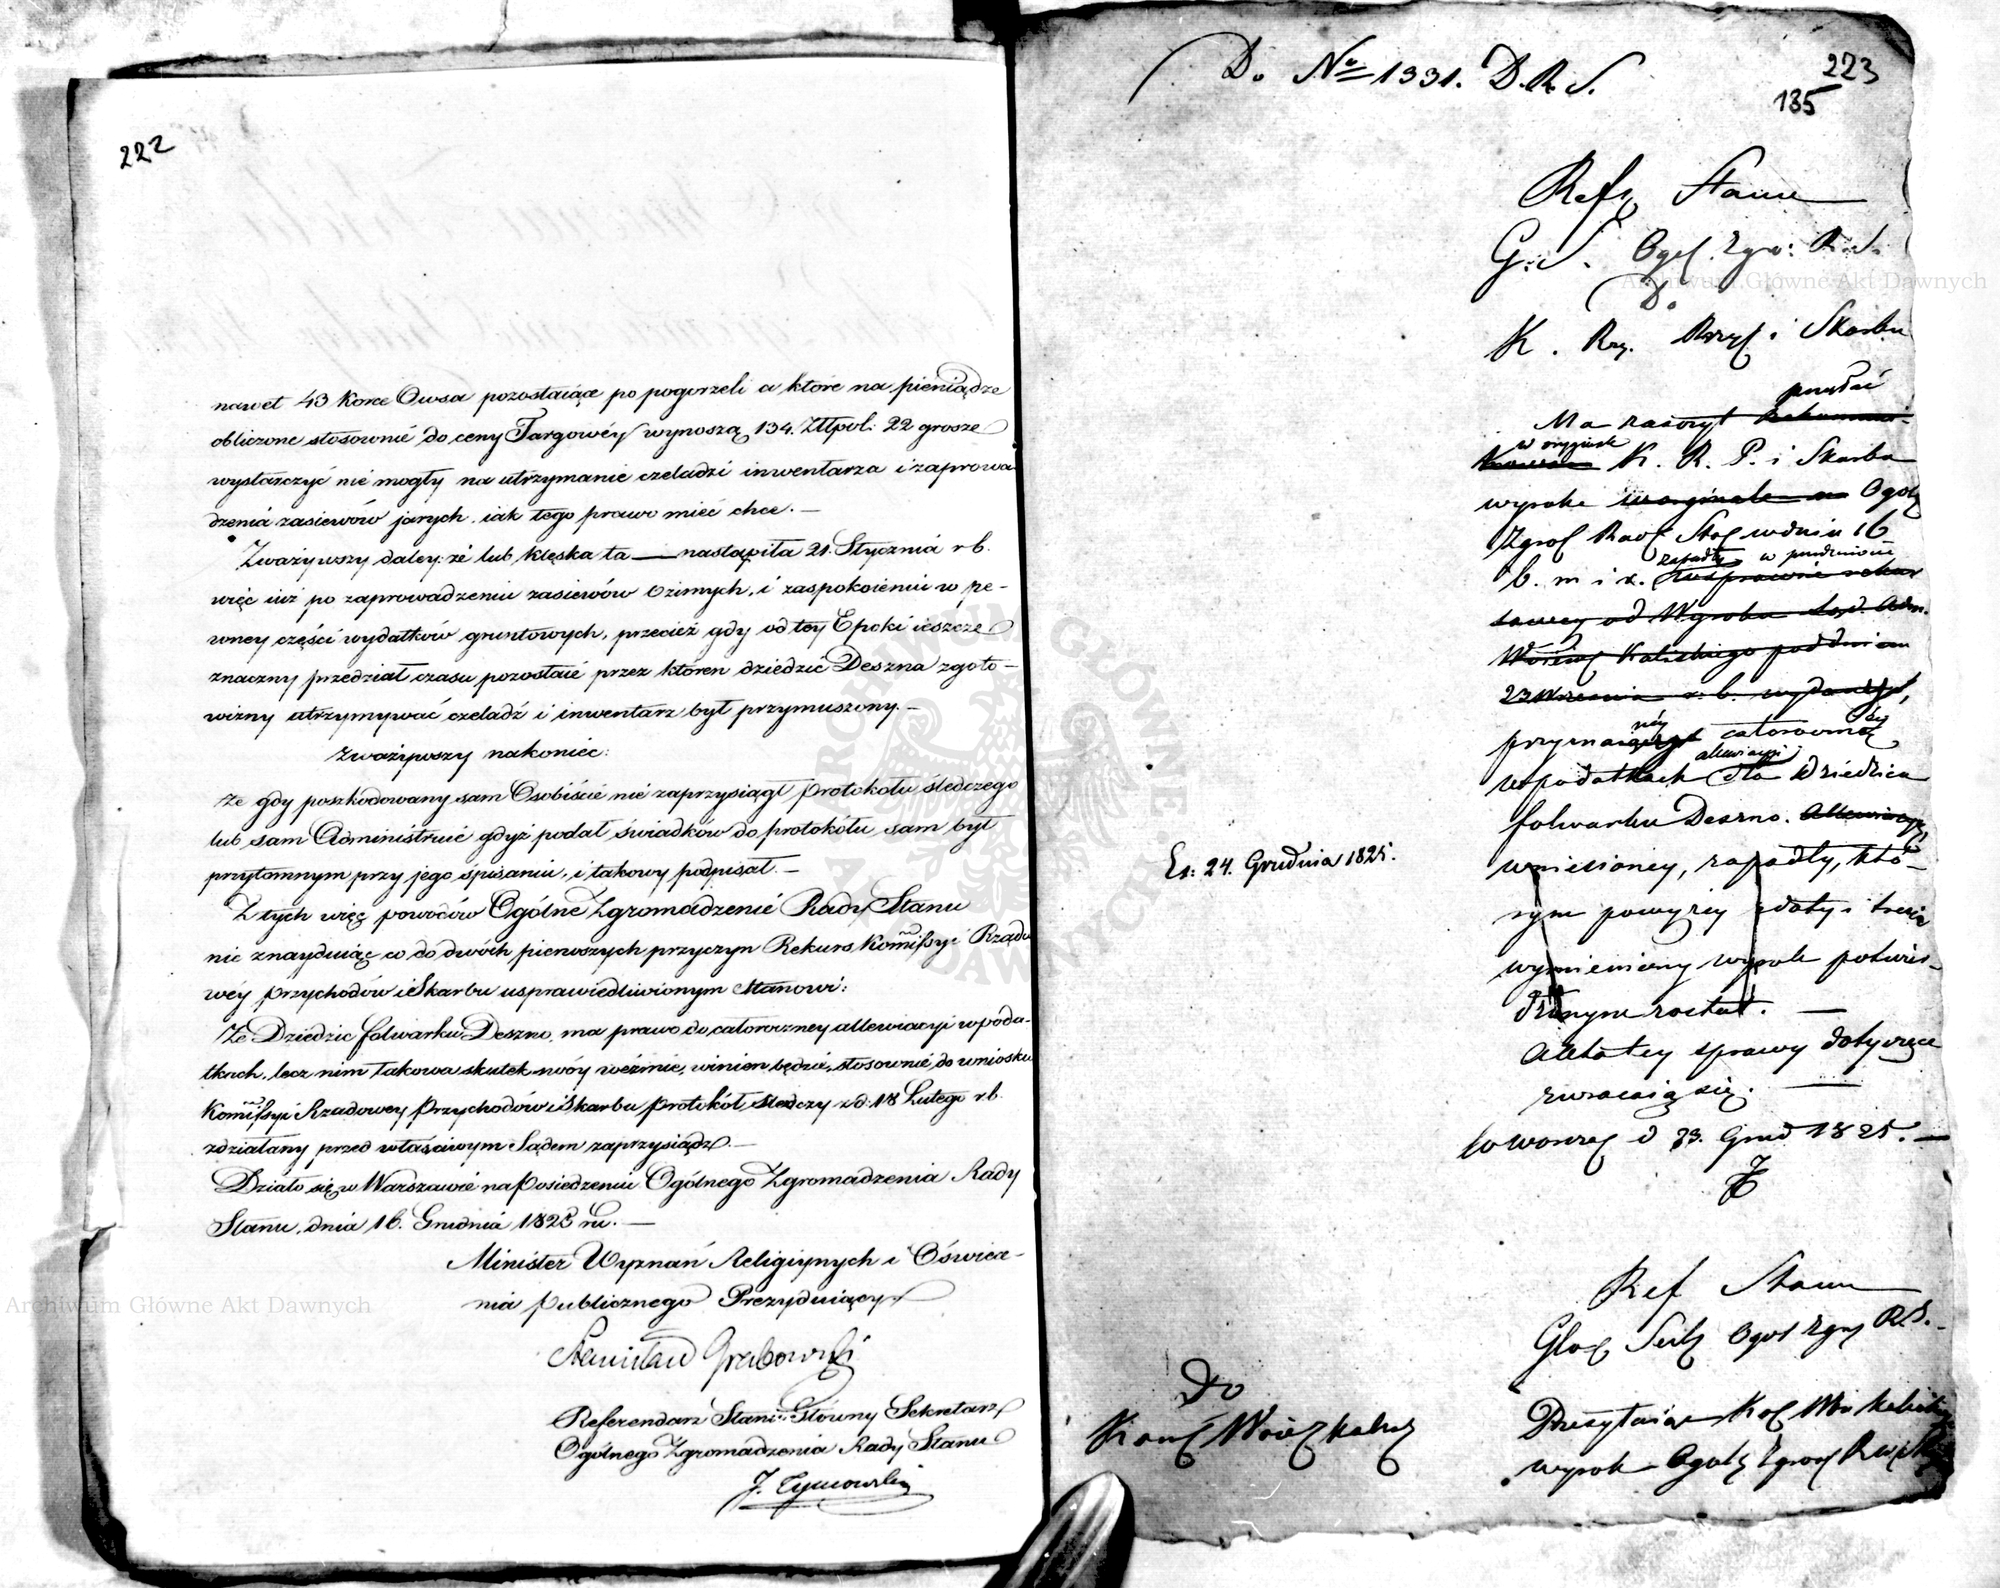 222
nawet 43 korce Owsa pozostaiące po pogorzeli a które na pieniądze
obliczone stosownie do ceny Targowéy wynoszą 134. Złłpol: 22 grosze
wystarczyć nié mogły na utrzymanie czeladzi inwentarza i zaprowa
dzenia zasiewów jarych, iak tego prawo mieć chce. —
Zważywszy daley: że lub klęska ta — nastąpiła 21. Stycznia r b.
więc iuż po zaprowadzeniu zasiewów ozimych, i zaspokoieniu w pe-
wney części wydatków gruntowych, przecież gdy od tey Epoki ieszcze
znaczny przedział czasu pozostaié przez któren dziedzic Deszna zgoto-
wizny utrzymywać czeladź i inwentarz był przymuszony. —
Zważywszy nakoniec:
że gdy poszkodowany sam Osobiście nié zaprzysiągł protokołu śledczego
lub sam Administruié gdyż podał świadków do protokółu, sam był
przytomnym przy jego śpisaniu, i takowy podpisał. —
Z tych więc powodów Ogólne Zgromadzenié Rady Stanu
nie znayduiąc co do dwóch pierwszych przyczyn Rekurs Kommissyi Rządo
wéy Przychodów i Skarbu usprawiedliwionym Stanowi:
że Dziedzic folwarku Deszno, ma prawo do całoroczney allewiacyi w poda-
tkach, lecz nim takowa skutek swóy weźmie, winien będzie, stosownié do wniosku
Kommissyi Rządowey Przychodów i Skarbu protokół śledczy z d: 18 Lutego r b.
zdziałany przed właściwym Sądem zaprzysiądz. —
Działo się w Warszawie na Posiedzeniu Ogólnego Zgromadzenia Rady
Stanu, dnia 16. Grudnia 1825 ru. —
Minister Wyznań Religiynych i Oświece-
nia Publicznego Prezyduiący
Stanisław Grabowski
Referendarz Stanu Główny Sekretarz
Ogólnego Zgromadzenia Rady Stanu
J. Tymowski
Do No 1331. D.R.S.
223
135
Ref Stanu
G. S. Ogól. Zgro: R. S.
Do
K. Rzą. Przych i Skarbu
przesłać
Ma zaszczyt
w oryginale
K. R. P. i Skarbu
wyroku Ogól
Zgrom Rady Stan w dniu 16
zapadły w przedmiocie
b. m i r.
Woiew Kaliskiego pod dniem
23 Września r. b. wydanego,
przyznaiącey całoroczną
allewiacyi
w podatkach dla Dziedzica
folwarku Deszno. Allewiacyi
wniesioney, zapadły, któ-
rym powyżey z daty i treści
wymieniony wyrok potwier-
dzonym został. —
Akta tey sprawy dotyczące
zwracaią się. —
w Warsza d 23. Grud 1825. —
Es: 24. Grudnia 1825.
Ref Stanu
Głow Sekr Ogól Zgro R.S.
Do
Kom Woiew Kalisk
Przesyłaiąc Kom Wo Kalisk
wyrok Ogól Zgrom Rady
Archiwum Główne Akt Dawnych
Archiwum Główne Akt Dawnych
ARCHIWUM GŁÓWNE AKT DAWNYCH